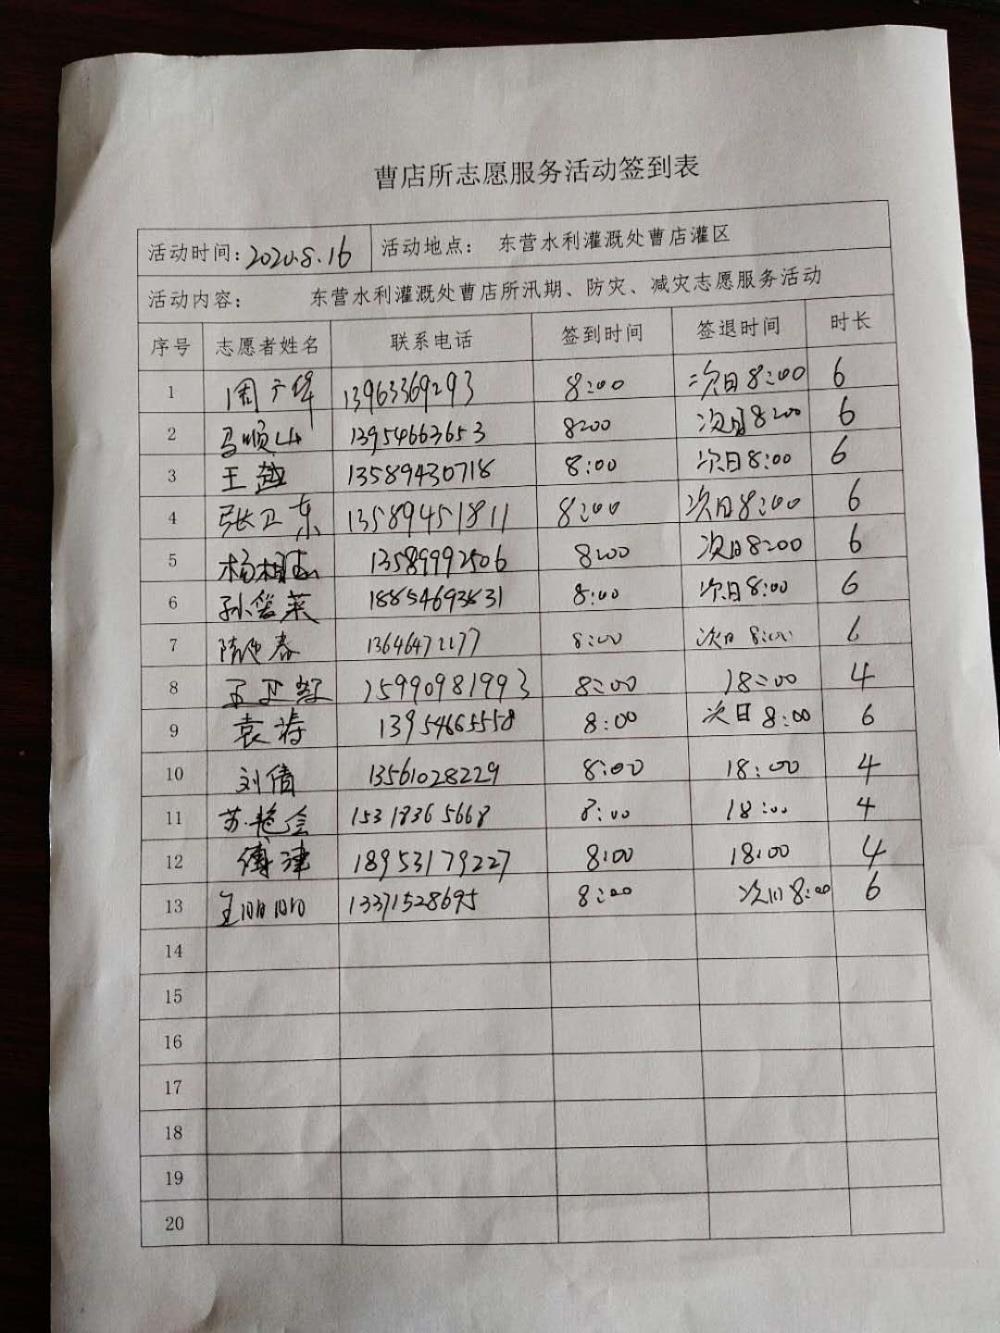 曹店所志愿服务活动签到表
活动时间：2020.8.16 活动地点： 东营水利灌溉处曹店灌区
活动内容： 东营水利灌溉处曹店所汛期、防灾、减灾志愿服务活动
序号 志愿者姓名 联系电话 签到时间 签退时间 时长
1 周广华 13963369293 8:00 次日8:00 6
2 马顺山 13954663653 8:00 次日8:00 6
3 王越 13589430718 8:00 次日8:00 6
4 张卫东 13589451811 8:00 次日8:00 6
5 13589992506 8:00 次日8:00 6
6 18854693831 8:00 次日8:00 6
7 隋迎春 13646472177 8:00 次日8:00 6
8 15990981993 8:00 18:00 4
9 袁涛 13954665558 8:00 次日8:00 6
10 刘倩 13561028229 8:00 18:00 4
11 苏艳会 15318365668 8:00 18:00 4
12 傅津 18953179227 8:00 18:00 4
13 王明明 13371528695 8:00 次日8:00 6
14
15
16
17
18
19
20